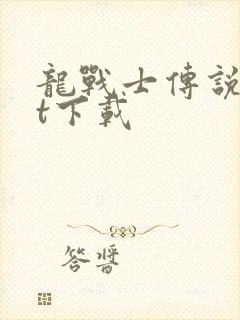 龍戰士傳説
t下載
答晉